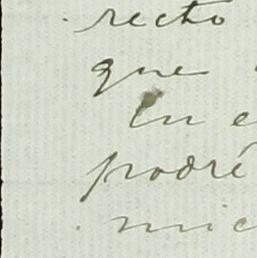 recto
que
En e
podré
mic